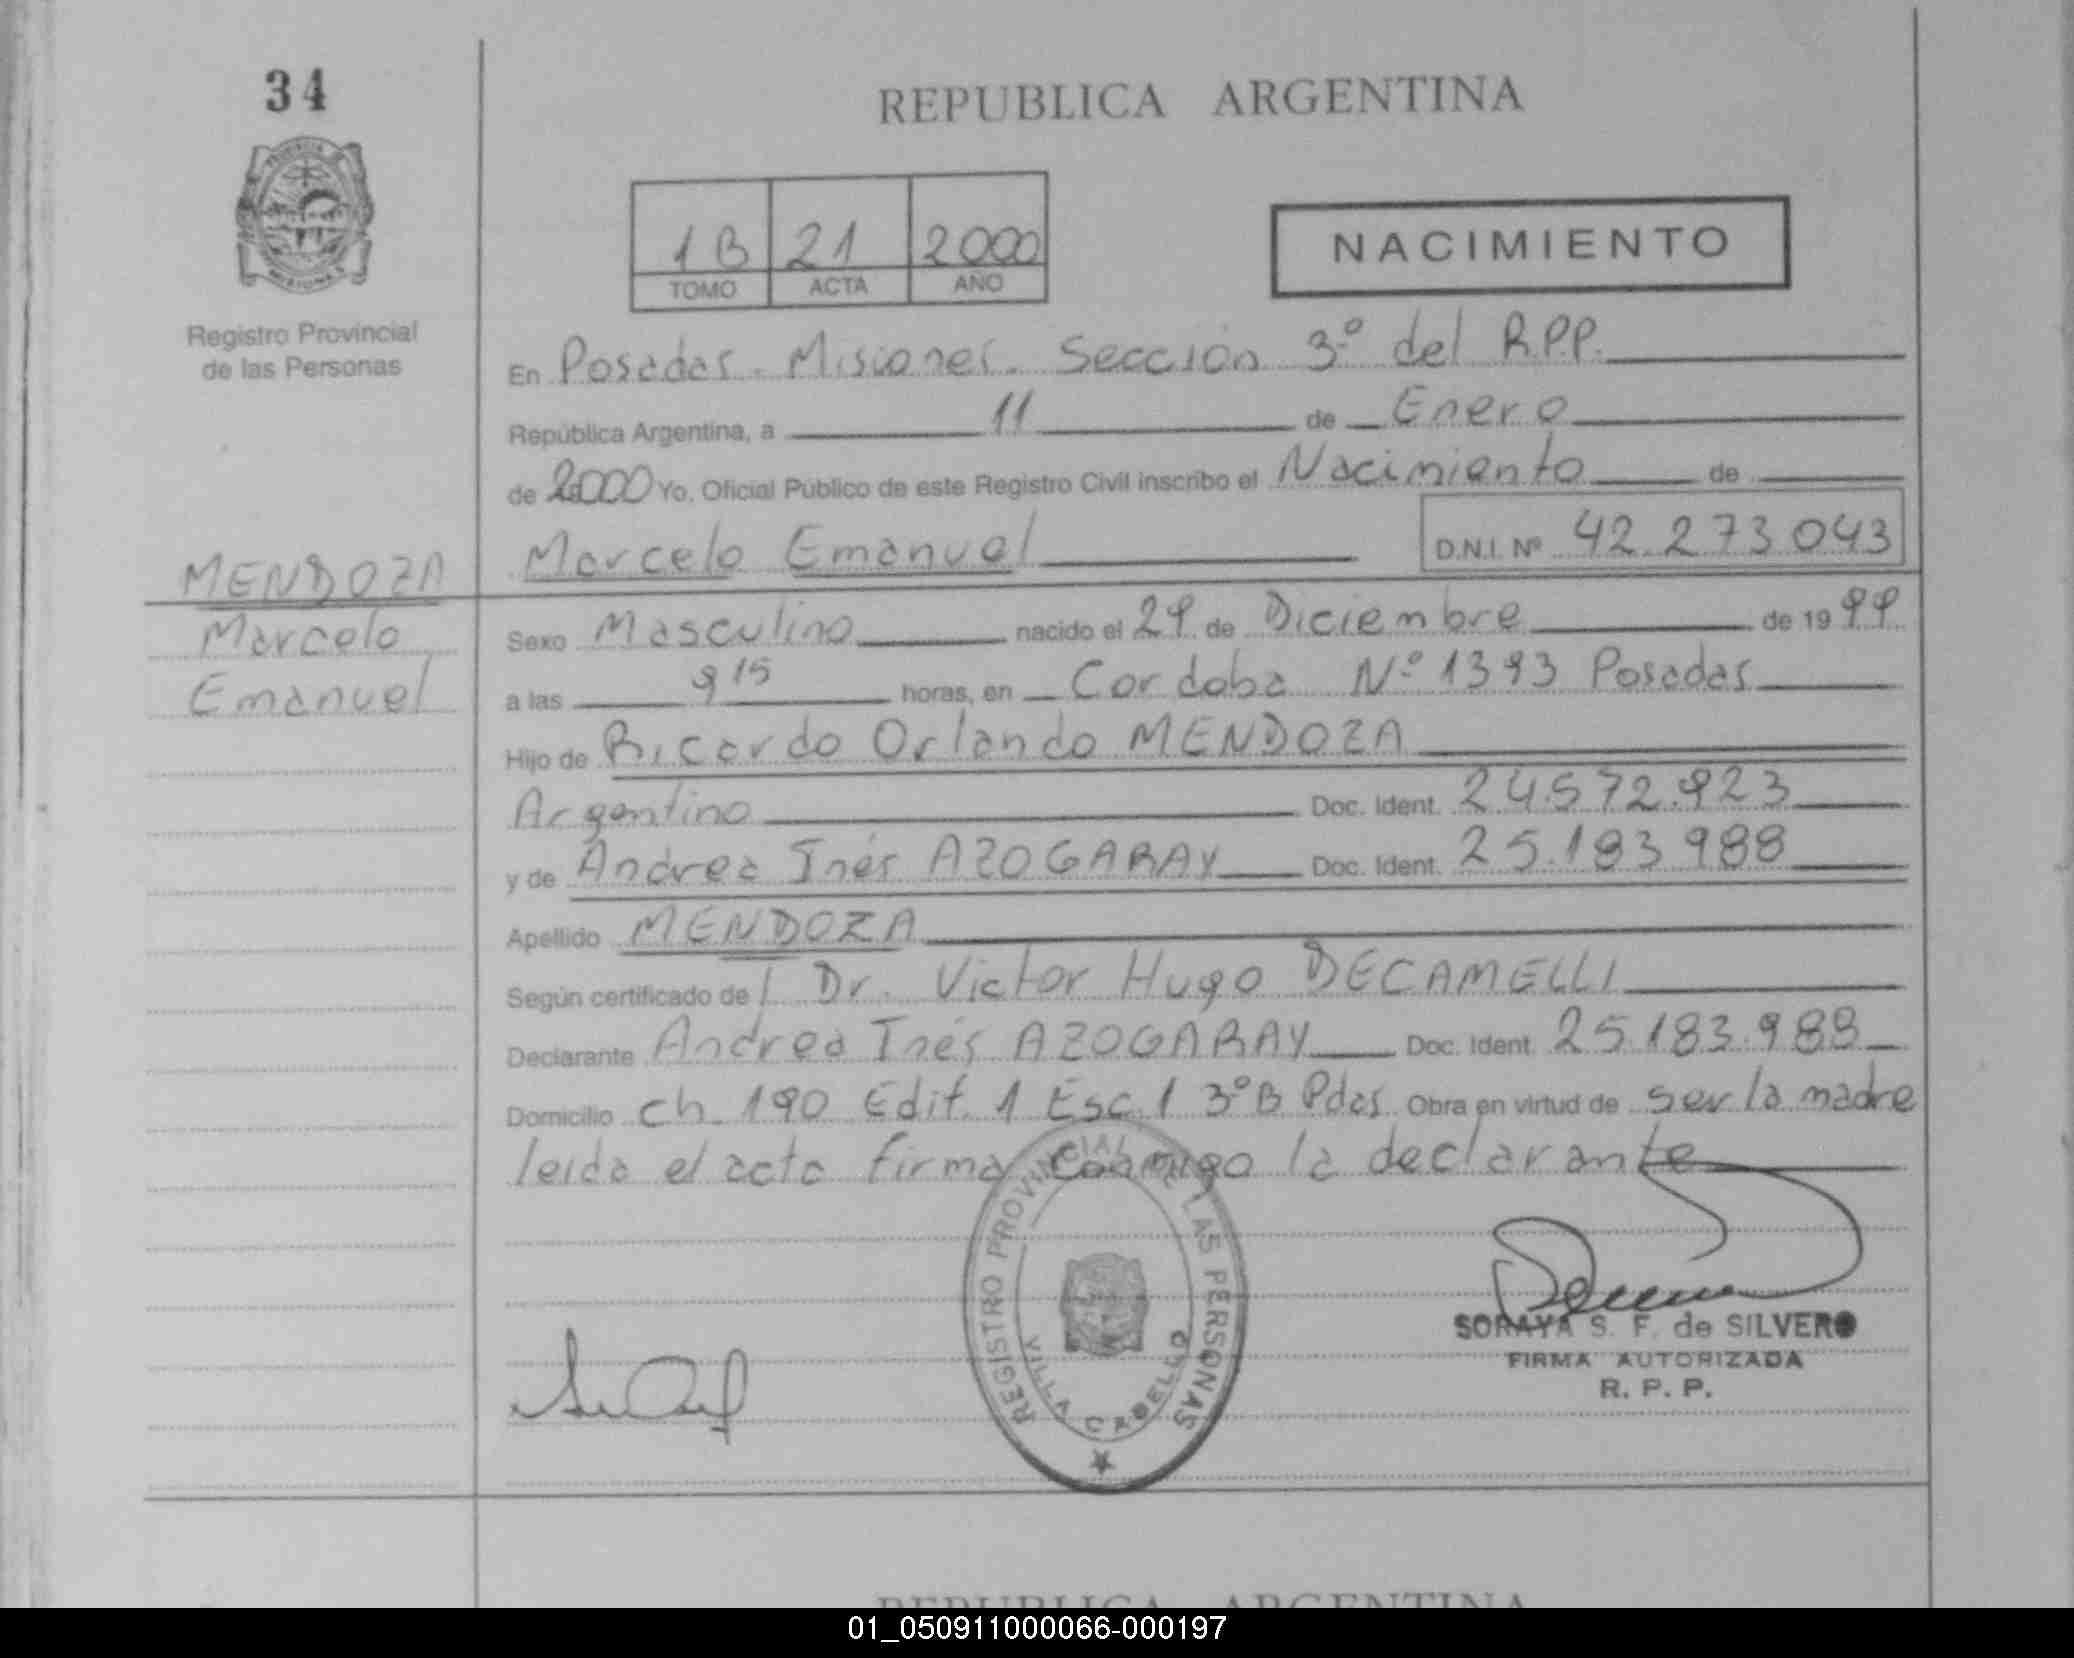 34
REPUBLICA ARGENTINA
1B 21 2000
TOMO ACTA AÑO
NACIMIENTO
Registro Provincial
de las Personas
En Posadas. Misiones. Sección 3º del R.P.P.
República Argentina, a 11 de Enero
de 2000 Yo. Oficial Público de este Registro Civil inscribo el Nacimiento de
Marcelo Emanuel D.N.I. Nº 42.273043
MENDOZA
Marcelo
Emanuel
Sexo Masculino nacido el 29 de Diciembre de 1999
a las 9 15 horas, en Cordoba Nº 1393 Posadas
Hijo de Ricardo Orlando MENDOZA
Argentino Doc. Ident. 24.572.923
y de Andrea Inés AZOGARAY Doc. Ident. 25.183988
Apellido MENDOZA
Según certificado de Dr. Victor Hugo DECAMELLI
Declarante Andrea Inés AZOGARAY Doc. Ident. 25.183.988
Domicilio ch. 190 Edif. 1 Esc. 1 3ºB Pdas. Obra en virtud de ser la madre
leida el acta firma conmigo la declarante
REGISTRO PROVINCIAL DE LAS PERSONAS
VILLA CABELLO
SORAYA S. F. de SILVERO
FIRMA AUTORIZADA
R. P. P.
REPUBLICA ARGENTINA
01_050911000066-000197